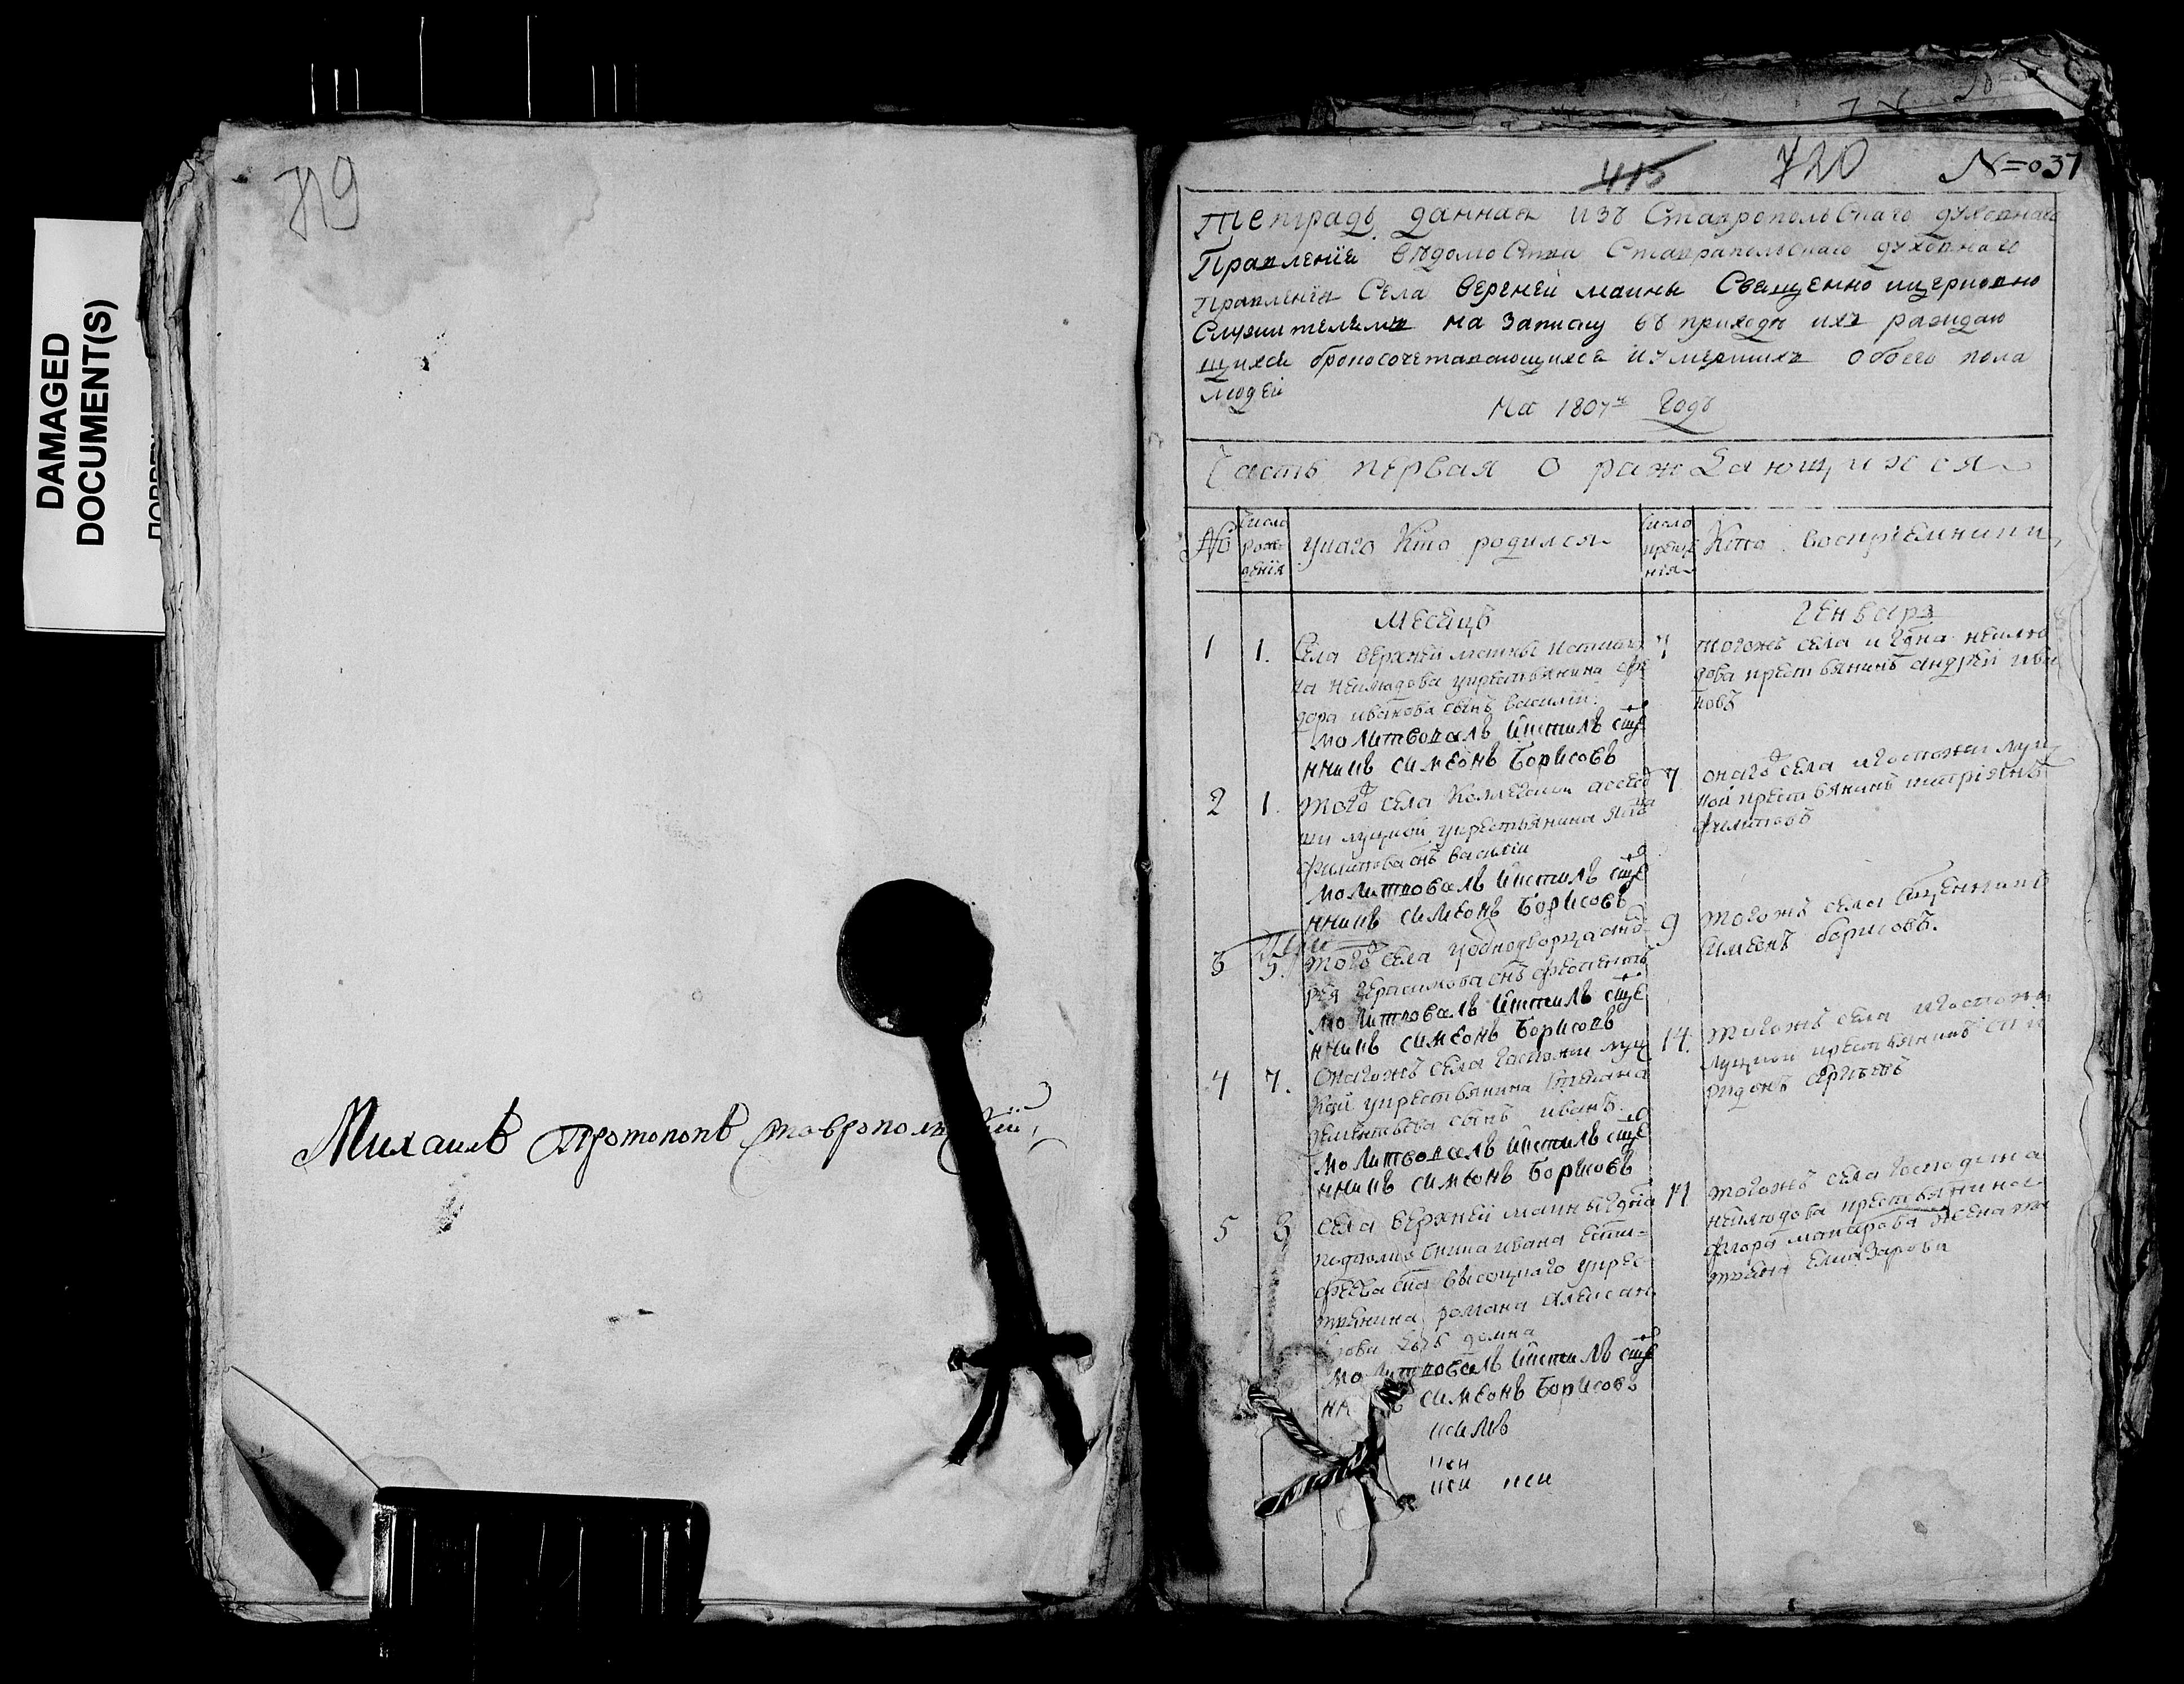 DAMAGED
DOCUMENT(S)
719
Михаилъ Протопопъ Ставропольскій
415 720 N=037
Тетрадь данная изъ Ставропольскаго духовнаго
Правленія вѣдомства Ставрапольскаго духовнаго
правленія Села верхней маины Священно ицерковно
Служителямъ на записку въ приходѣ ихъ ражדаю
щихся бракосочетавающихся иумершихъ обоего пола
людей
На 1807й Годъ
Часть первая о раждающихся
№ Число рож- денія укаго Кто родился Число креще нія Кто воспріемники
Месяцъ Генварь
1 1. Села верхней маины
ка неилюдова укрестьянина
дора иванова сынъ василій
молитвовалъ икстилъ сще
нникъ симеонъ Борисовъ
7 тогожъ села игдна неилю
дова крестьянинъ андрей ива
новъ
2 1. того села Коллегской асесор
ши луцкой укрестьянина
филипова снъ василій
молитвовалъ икстилъ сще
нникъ симеонъ Борисовъ
7 онаго села игоспожи луц
кой крестьянинъ
филиповъ
3 5. того села уоднодворца анд
рея герасимова снъ
молитвовалъ икстилъ сще
нникъ симеонъ Борисовъ
9 тогожъ села сщенникъ
Симеонъ борисовъ.
4 7. Онагожъ села Госпожи луц
кой укрестьянина степана
дементьева сынъ иванъ
молитвовалъ икстилъ сще
нникъ симеонъ Борисовъ
14. тогожъ села игоспожи
луцкой крестьянинъ спи
ридонъ сергѣевъ
5 8 села верхней маины гдна
подполковника ивана
сна высоцкаго укрес-
тьянина романа александ
рова дочь домна
молитвовалъ икстилъ сще
нникъ симеонъ Борисовъ
14 тогожъ села господина
неилюдова крестьянина
флора макарова жена та
тьяна елиазарова